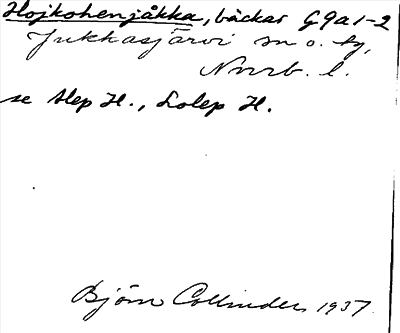 Hojkohenjåkka, bäckar G9a1-2
Jukkasjärvi sn o. tg,
Norrb. l.
se Alep H., Lolep H.
Björn Collinder 1937